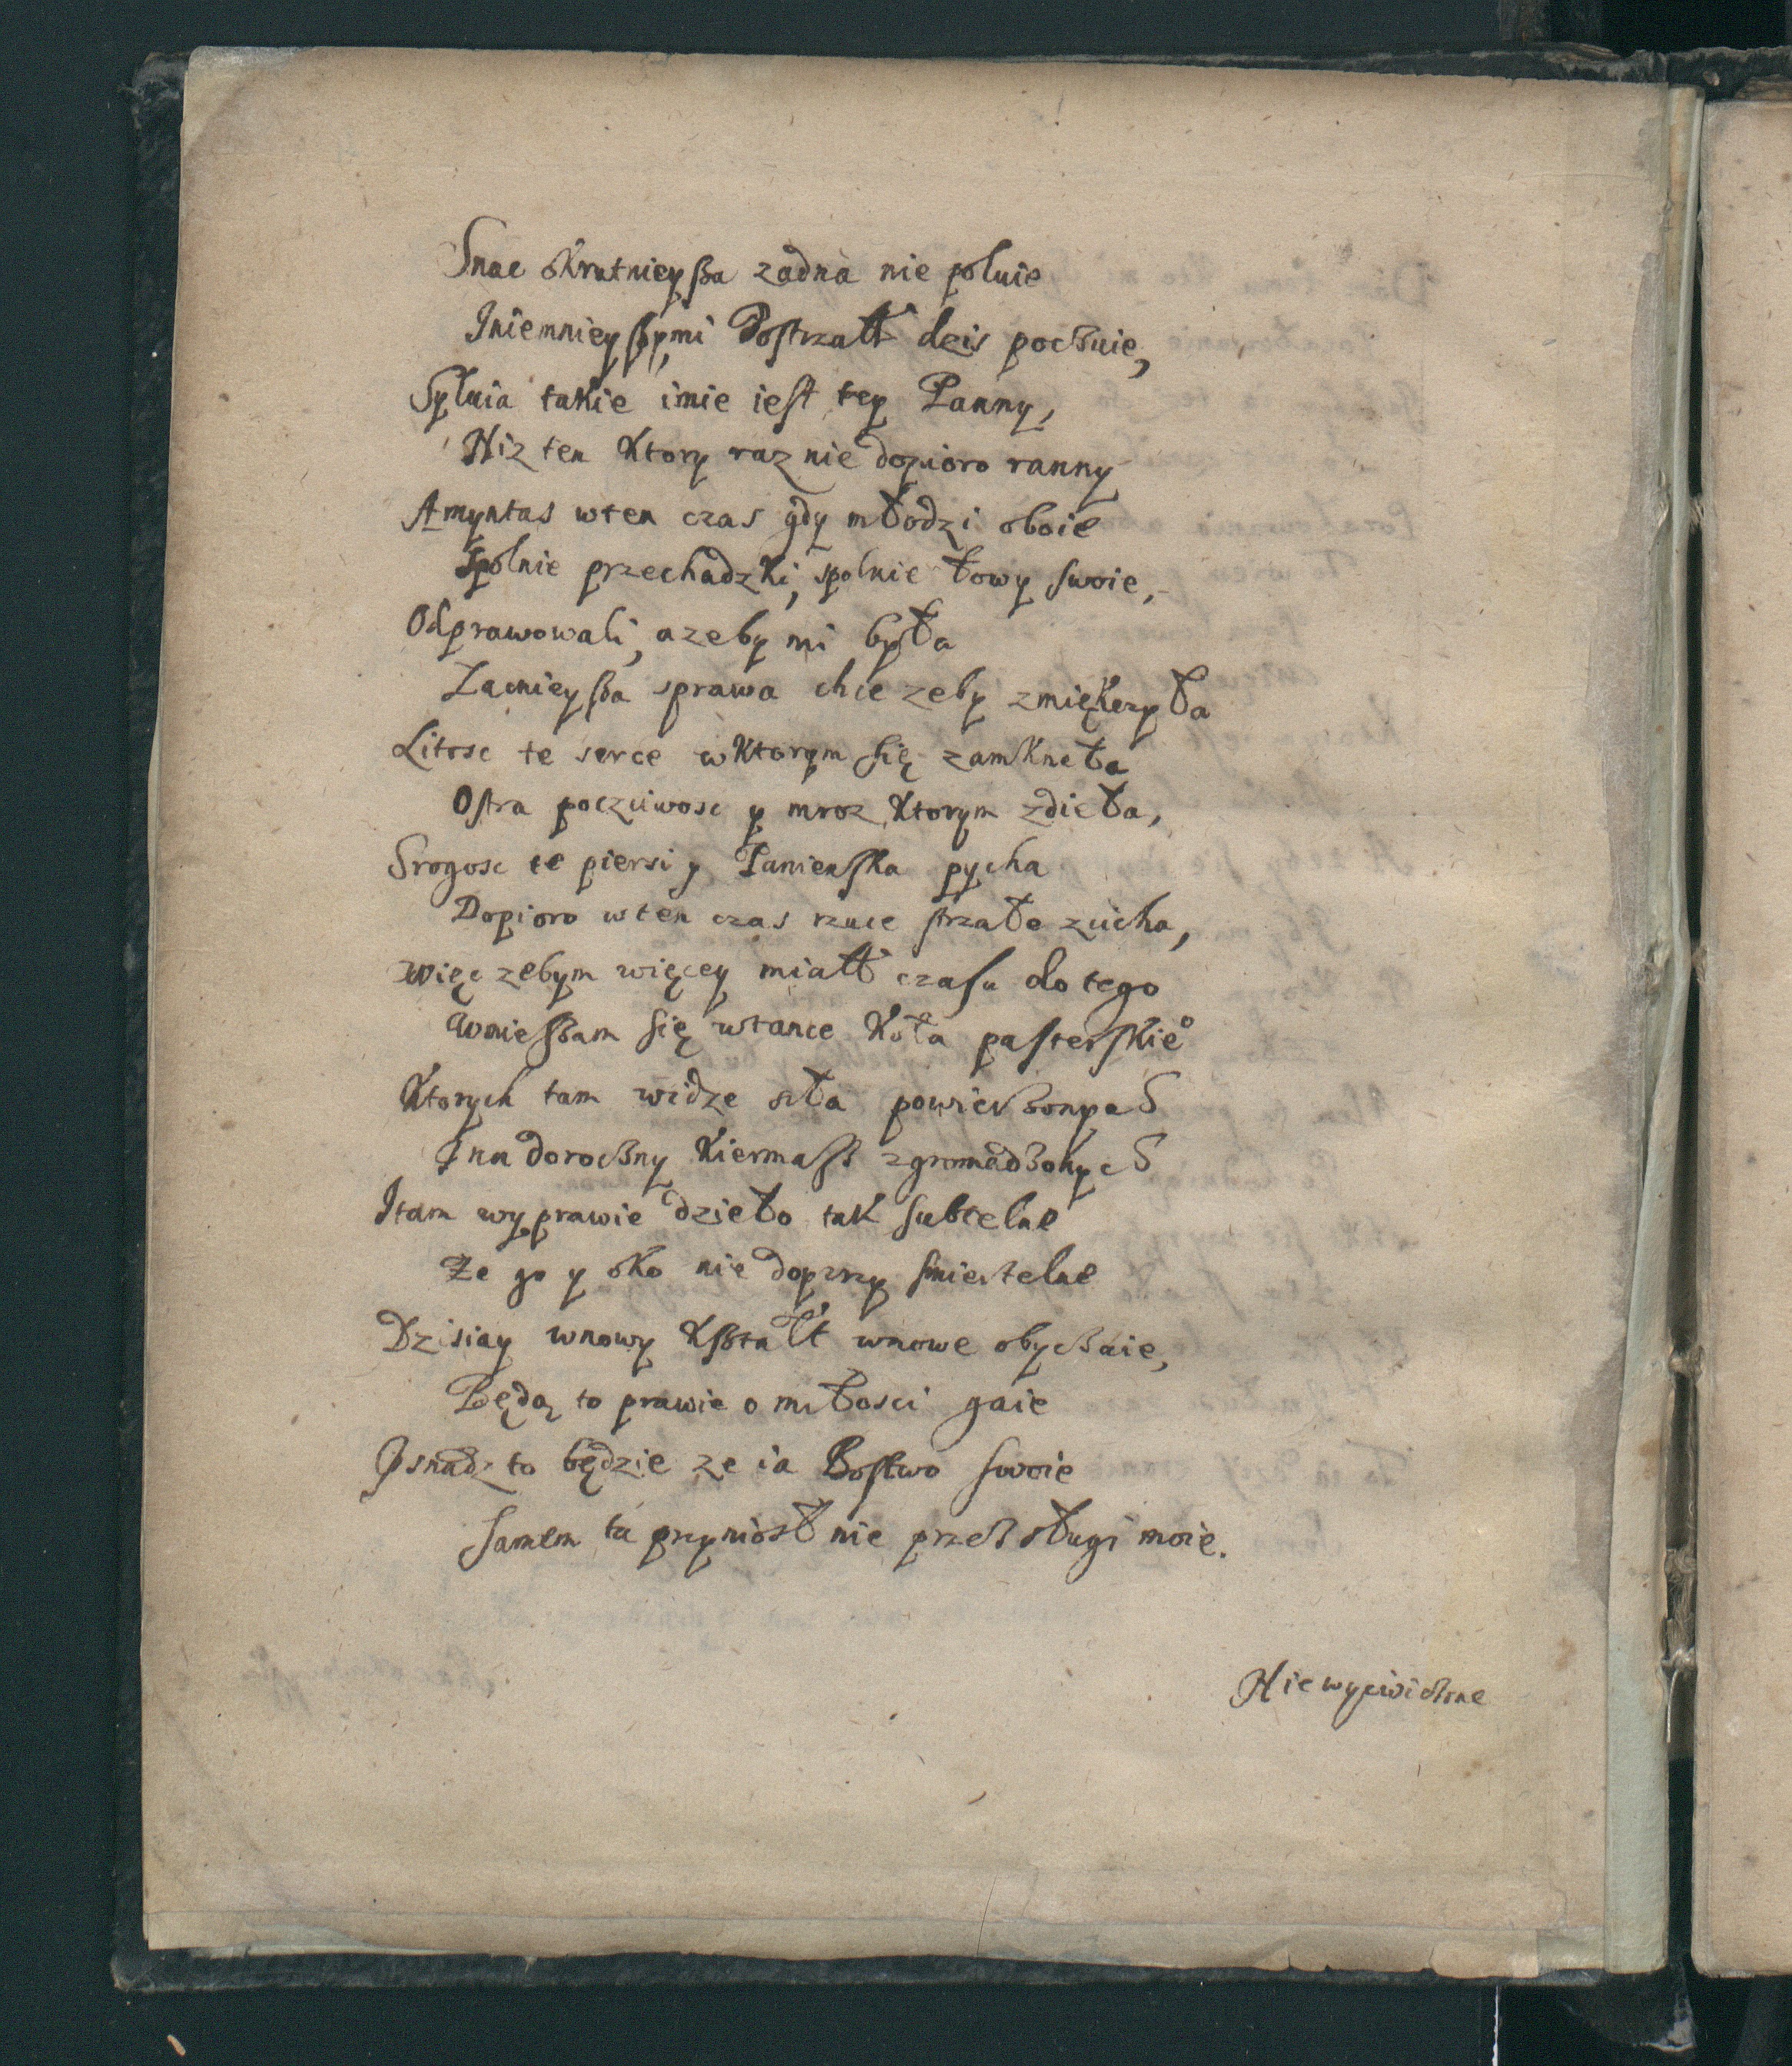 Snac okrutnieyßa zadna nie poluie
Iniemnieyßymi Postrzałł dzis poczuie,
Syluia takie imie iest tey Panny,
Niz ten Ktory raz nie dopioro ranny
Amyntas wten czas gdy młodzi oboie
Spolnie przechadzki, spolnie łowy swoie,
Odprawowali, azeby mi była
Zacnieyßa sprawa chce zeby zmiękczyła
Litosc te serce w Ktorym się zamkneła
Ostra poczciwosc y mroz, Ktorym zdieła,
Srogosc te piersi y Panienska pycha
Dopioro wten czas rzuce strzałe zcicha,
Więc zebym więcey miałł czasu do tego
Wmießam się wtance Koła pasterskie°
Ktorych tam widze siła powierzonych
I na doroczny Kiermaß zgromadzonych
Itam wyprawie dzieło tak subtelne
Ze go y oko nie doyzrzy smiertelne
Dzisiay wnowy Kßtałłt wnowe obyczaie,
Będą to prawie o miłosci gaie
I snadz to będzie ze ia Bostwo swoie
Samem tu przyniosł nie przez sługi moie.
Niewycwiczone